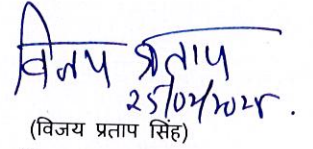 विजय प्रताप
25/02/2025.
(विजय प्रताप सिंह)